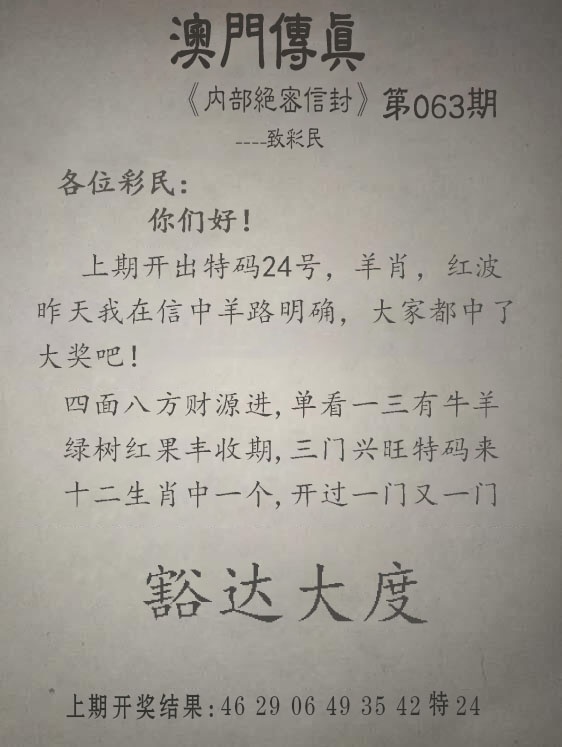 澳門傳真
《内部絕密信封》第063期
----致彩民
各位彩民：
你们好！
上期开出特码24号，羊肖，红波
昨天我在信中羊路明确，大家都中了
大奖吧！
四面八方财源进,单看一三有牛羊
绿树红果丰收期,三门兴旺特码来
十二生肖中一个,开过一门又一门
豁达大度
上期开奖结果:46 29 06 49 35 42 特 24